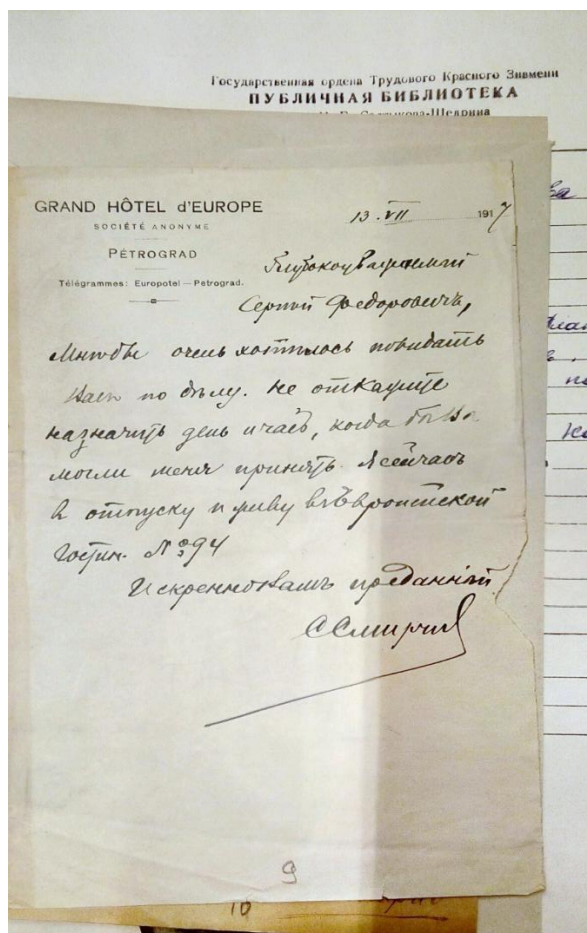 Государственная ордена Трудового Красного Знамени
ПУБЛИЧНАЯ БИБЛИОТЕКА
Салтыкова-Щедрина
GRAND HÔTEL d'EUROPE
SOCIÉTÉ ANONYME
PÉTROGRAD
Télégrammes: Europotel — Petrograd.
13. VII 1917
Глубокоуважаемый
Сергей Федоровичъ,
Мнѣ бы очень хотѣлось повидать
Васъ по дѣлу. Не откажите
назначить день и часъ, когда бы Вы
могли меня принять. Я сейчасъ
въ отпуску и живу въ Европейской
Гостин. № 94
Искренно Вашъ преданный
9
10